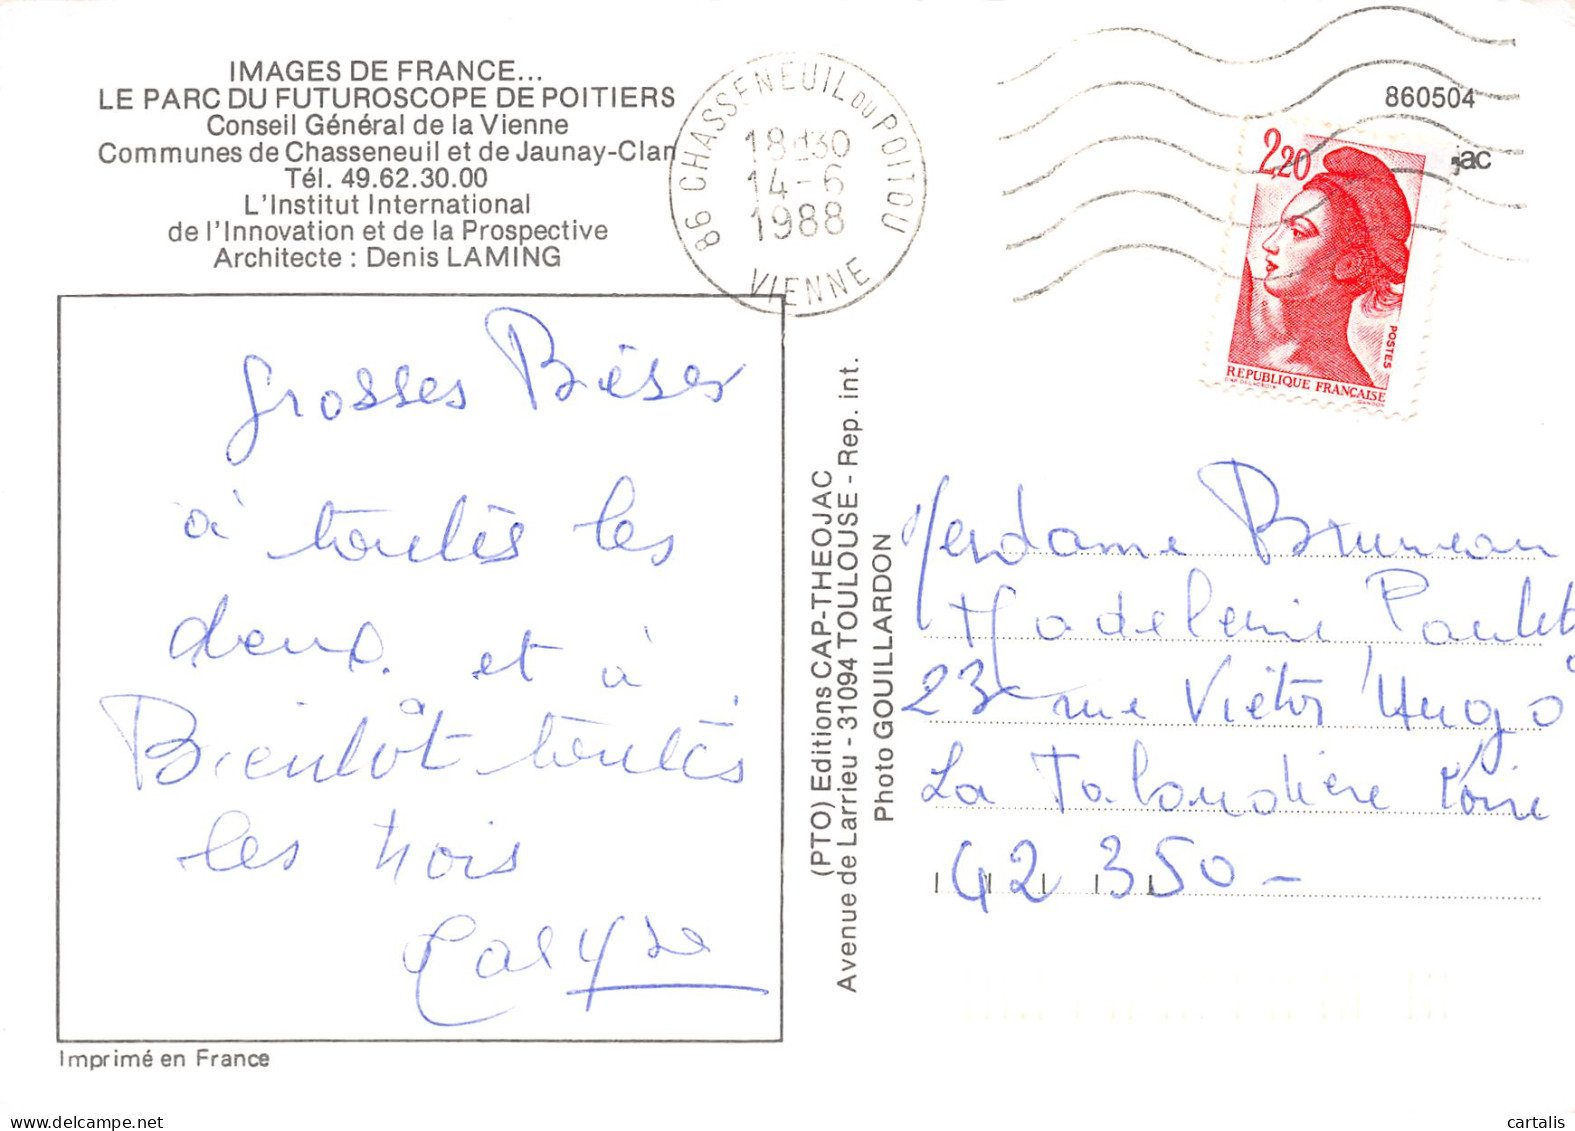 IMAGES DE FRANCE...
LE PARC DU FUTUROSCOPE DE POITIERS
Conseil Général de la Vienne
Communes de Chasseneuil et de Jaunay-Clan
Tél. 49.62.30.00
L'Institut International
de l'Innovation et de la Prospective
Architecte : Denis LAMING
86 CHASSENEUIL DU POITOU
18H30
14-6
1988
VIENNE
860504
jac
2,20
POSTES
REPUBLIQUE FRANÇAISE
grosses Bises
à toutes les
deux. et à
Bientôt toutes
les trois
Imprimé en France
(PTO) Editions CAP-THEOJAC
Avenue de Larrieu - 31094 TOULOUSE - Rep. int.
Photo GOUILLARDON
Madame Bruneau
Madeleine
23 rue Victor Hugo
La Talaudière Loire
42 350-
cartalis